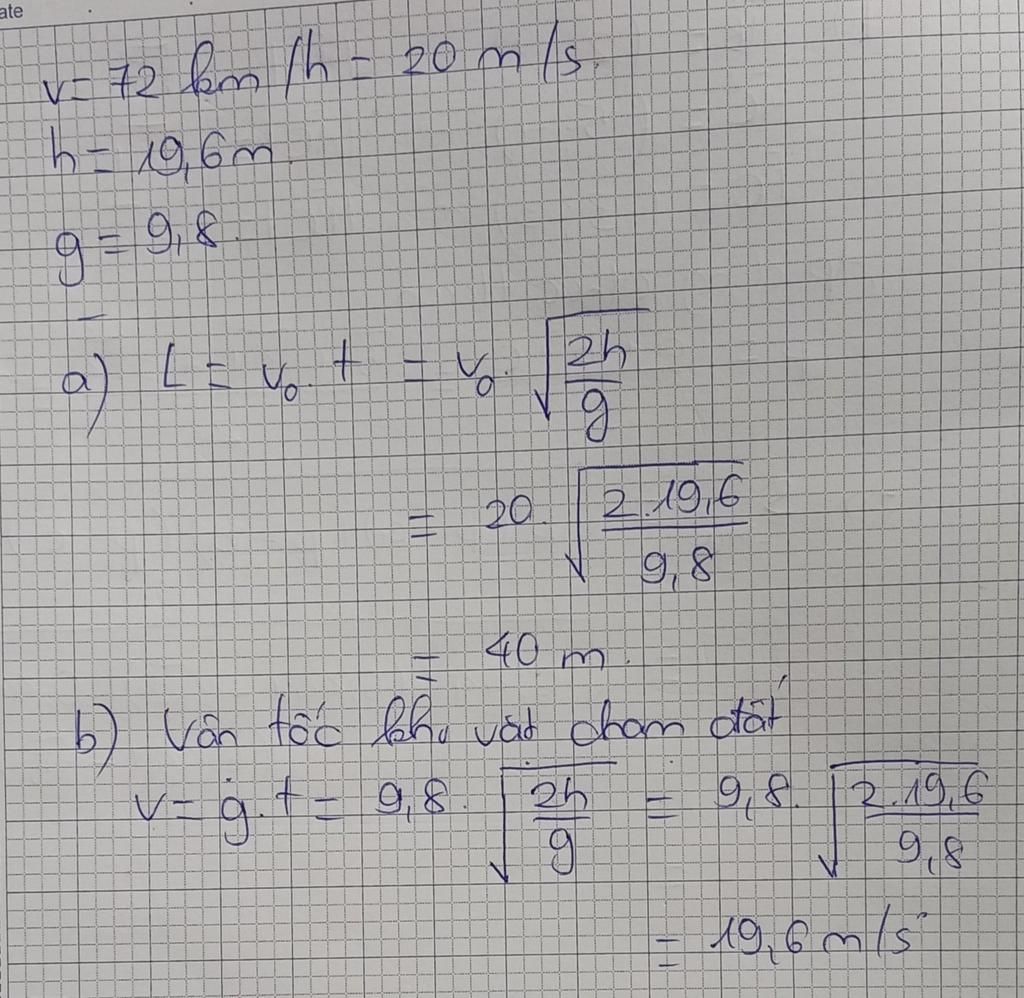 ate
v = 72 km/h = 20 m/s.
h = 19,6m
g = 9,8.
a) L = v₀.t = v₀.√(2h/g)
= 20.√(2.19,6/9,8)
= 40 m.
b) Vân tốc khi vât cham đất
v = g.t = 9,8.√(2h/g) = 9,8.√(2.19,6/9,8)
= 19,6 m/s